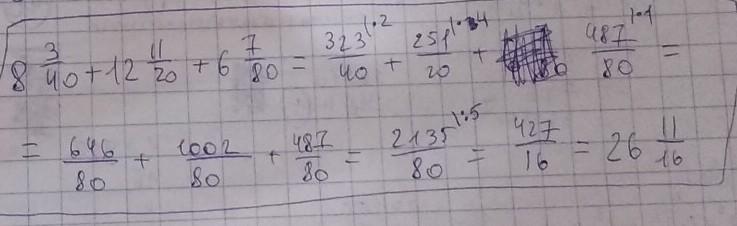 8 3/40 + 12 11/20 + 6 7/80 = 323/40 |·2 + 251/20 |·4 + 487/80 |·1 =
= 646/80 + 1002/80 + 487/80 = 2135/80 |:5 = 427/16 = 26 11/16